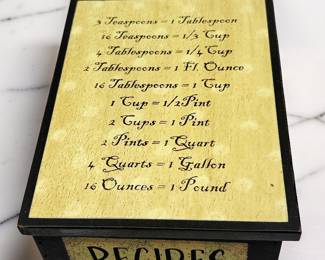 3 Teaspoons = 1 Tablespoon
16 Teaspoons = 1/3 Cup
4 Tablespoons = 1/4 Cup
2 Tablespoons = 1 Fl. Ounce
16 Tablespoons = 1 Cup
1 Cup = 1/2 Pint
2 Cups = 1 Pint
2 Pints = 1 Quart
4 Quarts = 1 Gallon
16 Ounces = 1 Pound
RECIPES